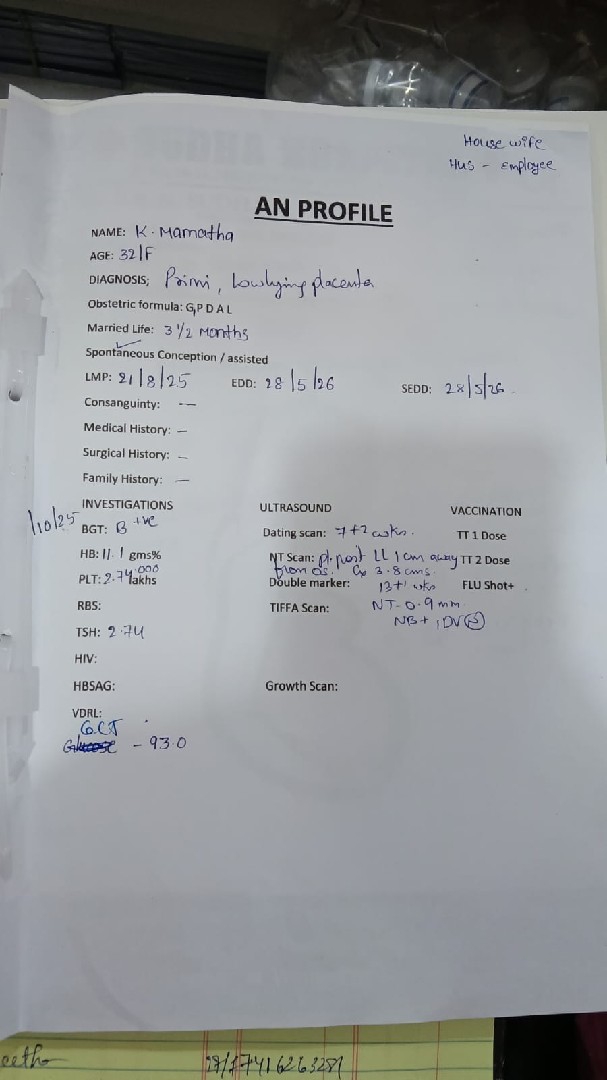 House wife
Hus - Employee
AN PROFILE
NAME: K. Mamatha
AGE: 32/F
DIAGNOSIS; Primi, Lowlying placenta
Obstetric formula: G₁P D A L
Married Life: 3 1/2 Months
Spontaneous Conception / assisted
LMP: 21/8/25 EDD: 28/5/26 SEDD: 28/5/26
Consanguinty: —
Medical History: —
Surgical History: —
Family History: —
INVESTIGATIONS ULTRASOUND VACCINATION
/10/25
BGT: B +ve Dating scan: 7+2 wks. TT 1 Dose
HB: 11.1 gms% NT Scan: pl. post LL 1 cm away TT 2 Dose
from os. Cx 3.8 cms.
PLT: 2.74,000 lakhs Double marker: 13+1 wks FLU Shot+
RBS: TIFFA Scan: NT-0.9 mm
NB+, DV
TSH: 2.74
HIV:
HBSAG: Growth Scan:
VDRL:
GCT
- 93.0
17416263281